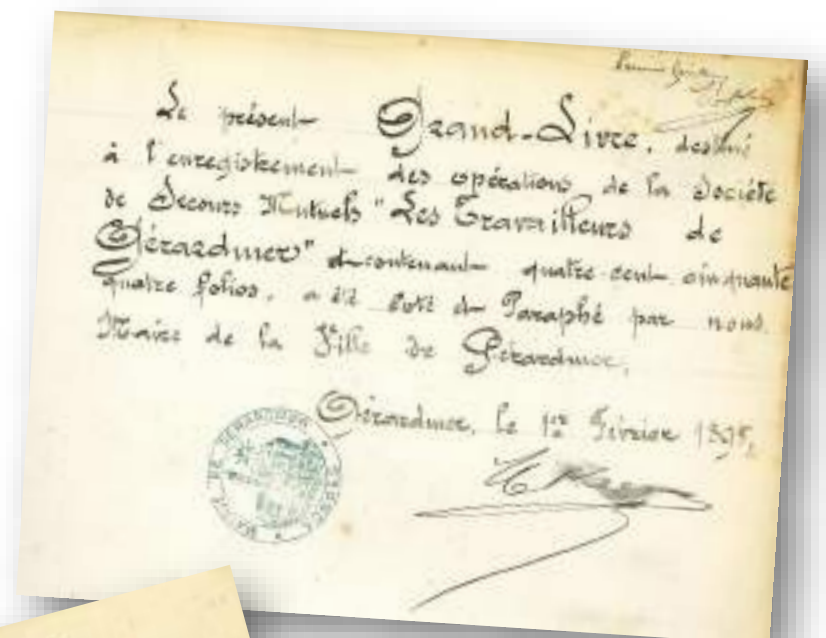 Le présent Grand-Livre, destiné
à l'enregistrement des opérations de la Société
de Secours Mutuels "Les Travailleurs de
Gérardmer" et contenant quatre cent cinquante
quatre folios, a été coté et Paraphé par nous
Maire de la Ville de Gérardmer,
Gérardmer, le 1er Février 1895,
MAIRIE DE GERARDMER